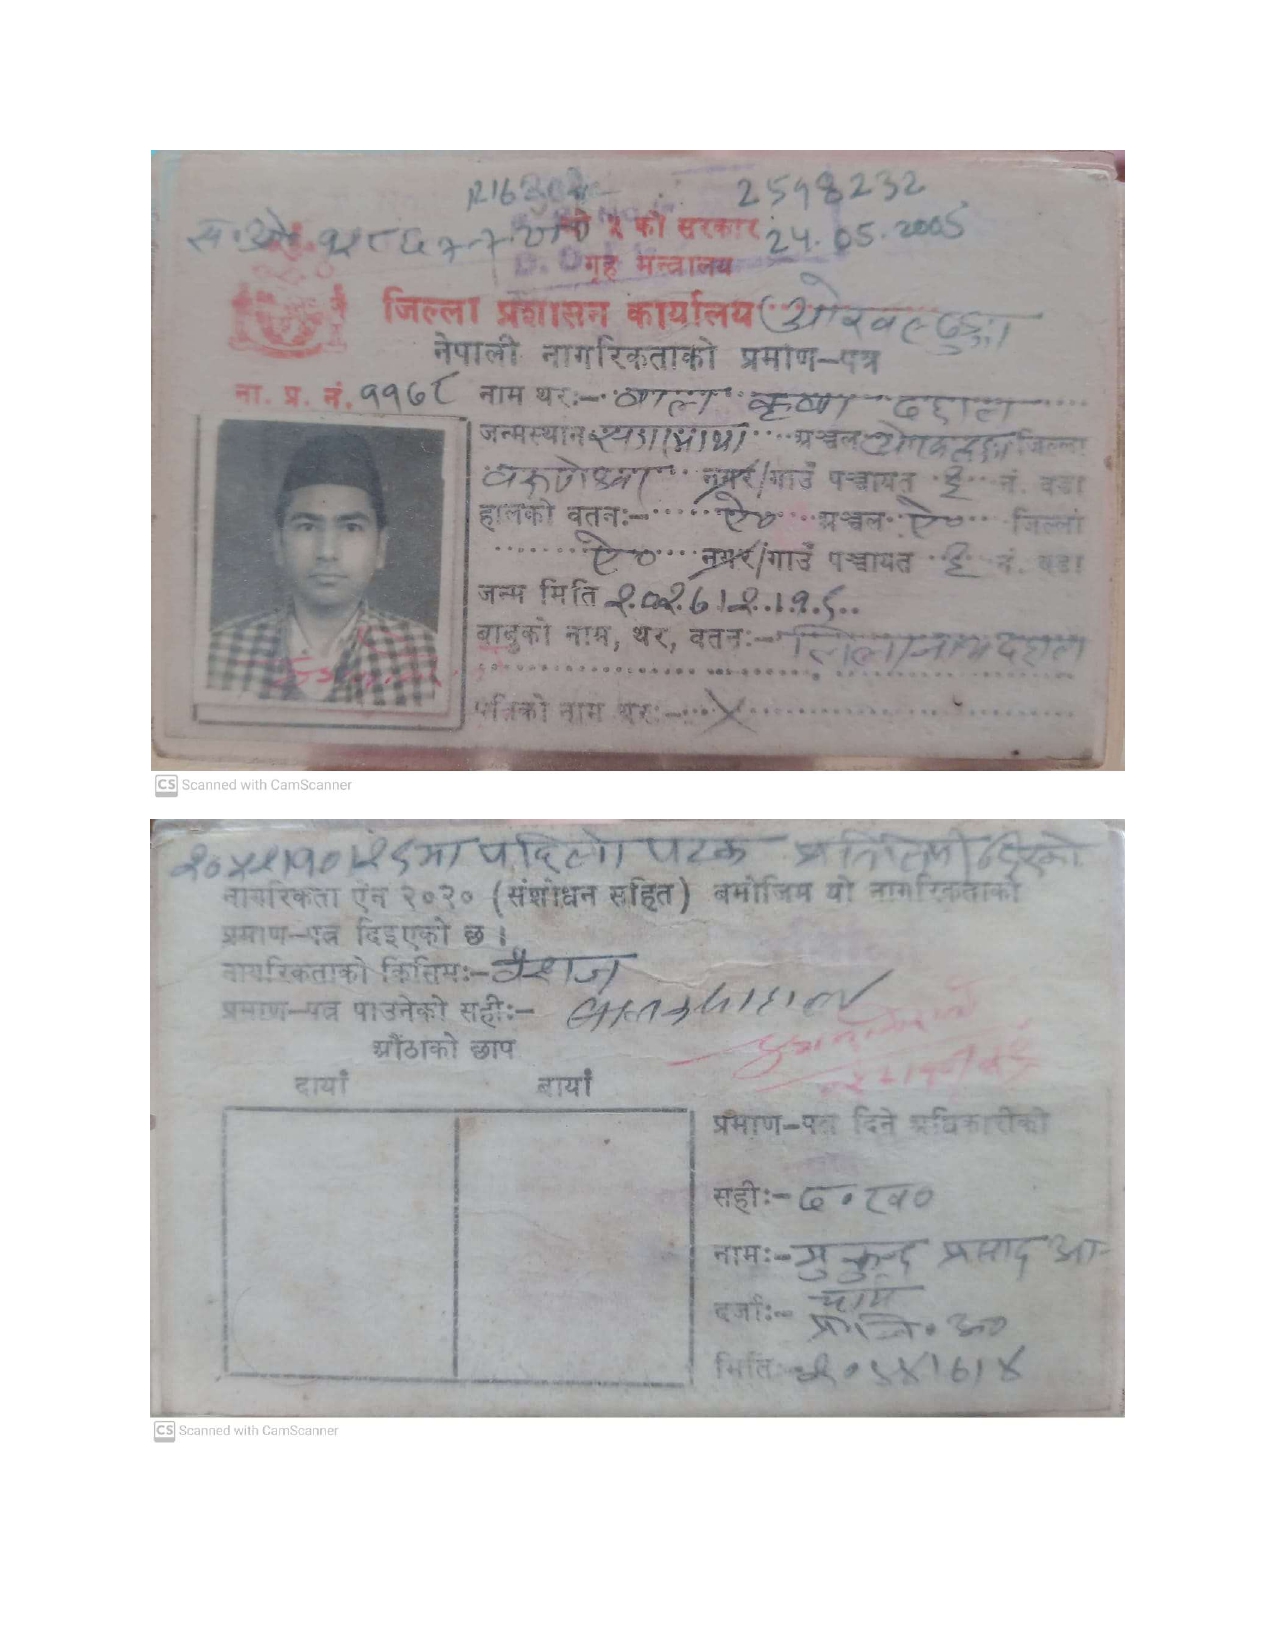 2598232
श्री ५ को सरकार 24.05.2005
गृह मन्त्रालय
जिल्ला प्रशासन कार्यालय
नेपाली नागरिकताको प्रमाण-पत्र
ना. प्र. नं. ११६८ नाम थर:- बाल कृष्ण दहाल
जन्मस्थान सगरमाथा अञ्चल ओखलढुङ्गा जिल्ला
वरुणेश्वर नगर/गाउँ पञ्चायत ६ नं. वडा
हालको वतन:- ऐ० अञ्चल ऐ० जिल्ला
ऐ० नगर/गाउँ पञ्चायत ६ नं. वडा
जन्म मिति
बाबुको नाम, थर, वतन:- दहाल
पतिको नाम थर:- X
CS Scanned with CamScanner
पहिलो पटक प्रतिलिपी दिएको
नागरिकता ऐन २०२० (संशोधन सहित) बमोजिम यो नागरिकताको
प्रमाण-पत्र दिइएको छ ।
नागरिकताको किसिम:- वंशज
प्रमाण-पत्र पाउनेको सही:-
औंठाको छाप
दायाँ बायाँ
प्रमाण-पत्र दिने अधिकारीको
सही:- द.ख०
नाम:- मुकुन्द प्रसाद आ-
चार्य
दर्जा:- प्र.जि.अ०
मिति:-
CS Scanned with CamScanner